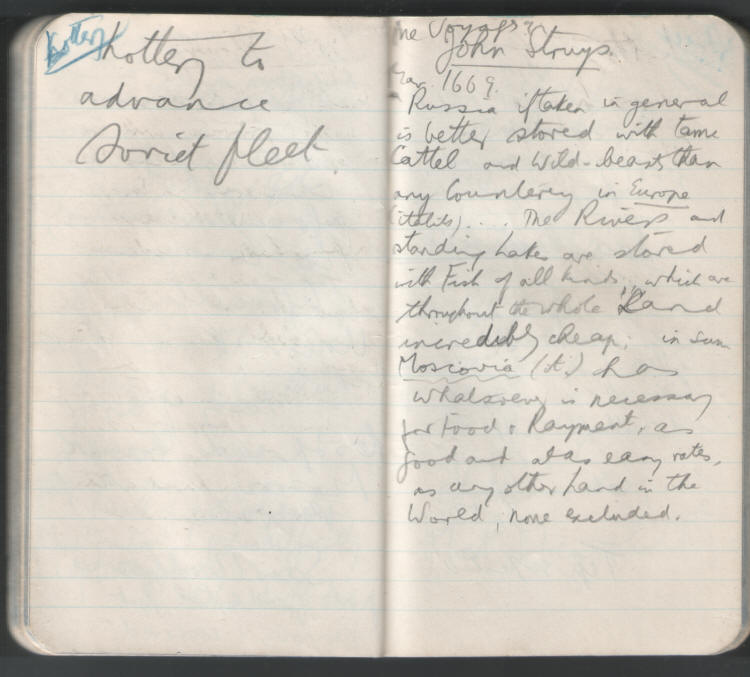 Lottery
Lottery to
advance
Soviet fleet.
The Voyages
John Struys.
Mar. 1669.
Russia if taken in general
is better stored with tame
Cattel and Wild-beasts than
any Counterey in Europe
(italics) . . . The Rivers and
standing Lakes are stored
with Fish of all kinds, which are
throughout the whole Land
incredibly cheap; in sum
Moscovia (it.) has
whatsoever is necessary
for Food & Rayment, as
good and at as easy rates,
as any other Land in the
World, none excluded.